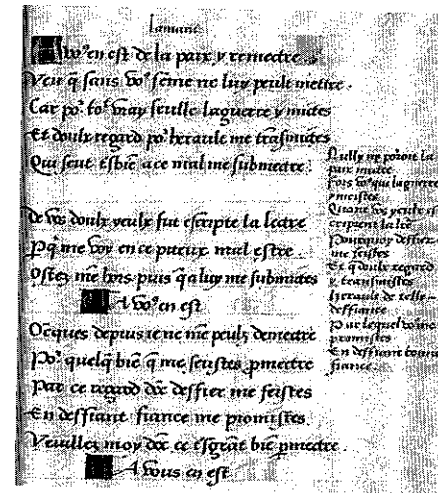 lamant
A vo9 en est de la paix y remectre
Veu q̄ sans vo9 feme ne luy peult mettre
Car po2 to9 may seulle laguerre y mistes
Et doulx regard po2 heraule me trāsmistes
Qui seut esbié a ce mal me submectre
De vos doulx yeulx fut escripte la lectre
Pq̄ me voy en ce piteux mal estre
Ostez me hors puis q̄ a luy me submistes
A vo9 en est
Oecques depuis ie ne me peulz demectre
Po2 quelq̄ biē q̄ me feistes pmectre
Par ce regard dōt deffier me feistes
En deffiant fiance me promistes
Veuillez moy dōc ce esgrāt biē pmectre
A vous en est
Nully ny pozoit la
paix mectre
Fors vo9 qui laguerre
y meistes
Quant voz yeulx es
cripuent la lrē
Pourquoy deffier
me feistes
Et q̄ doulx regard
y transmistes
Herault de telle
deffiance
Par lequel vo9 me
promistes
En deffiant bonne
fiance